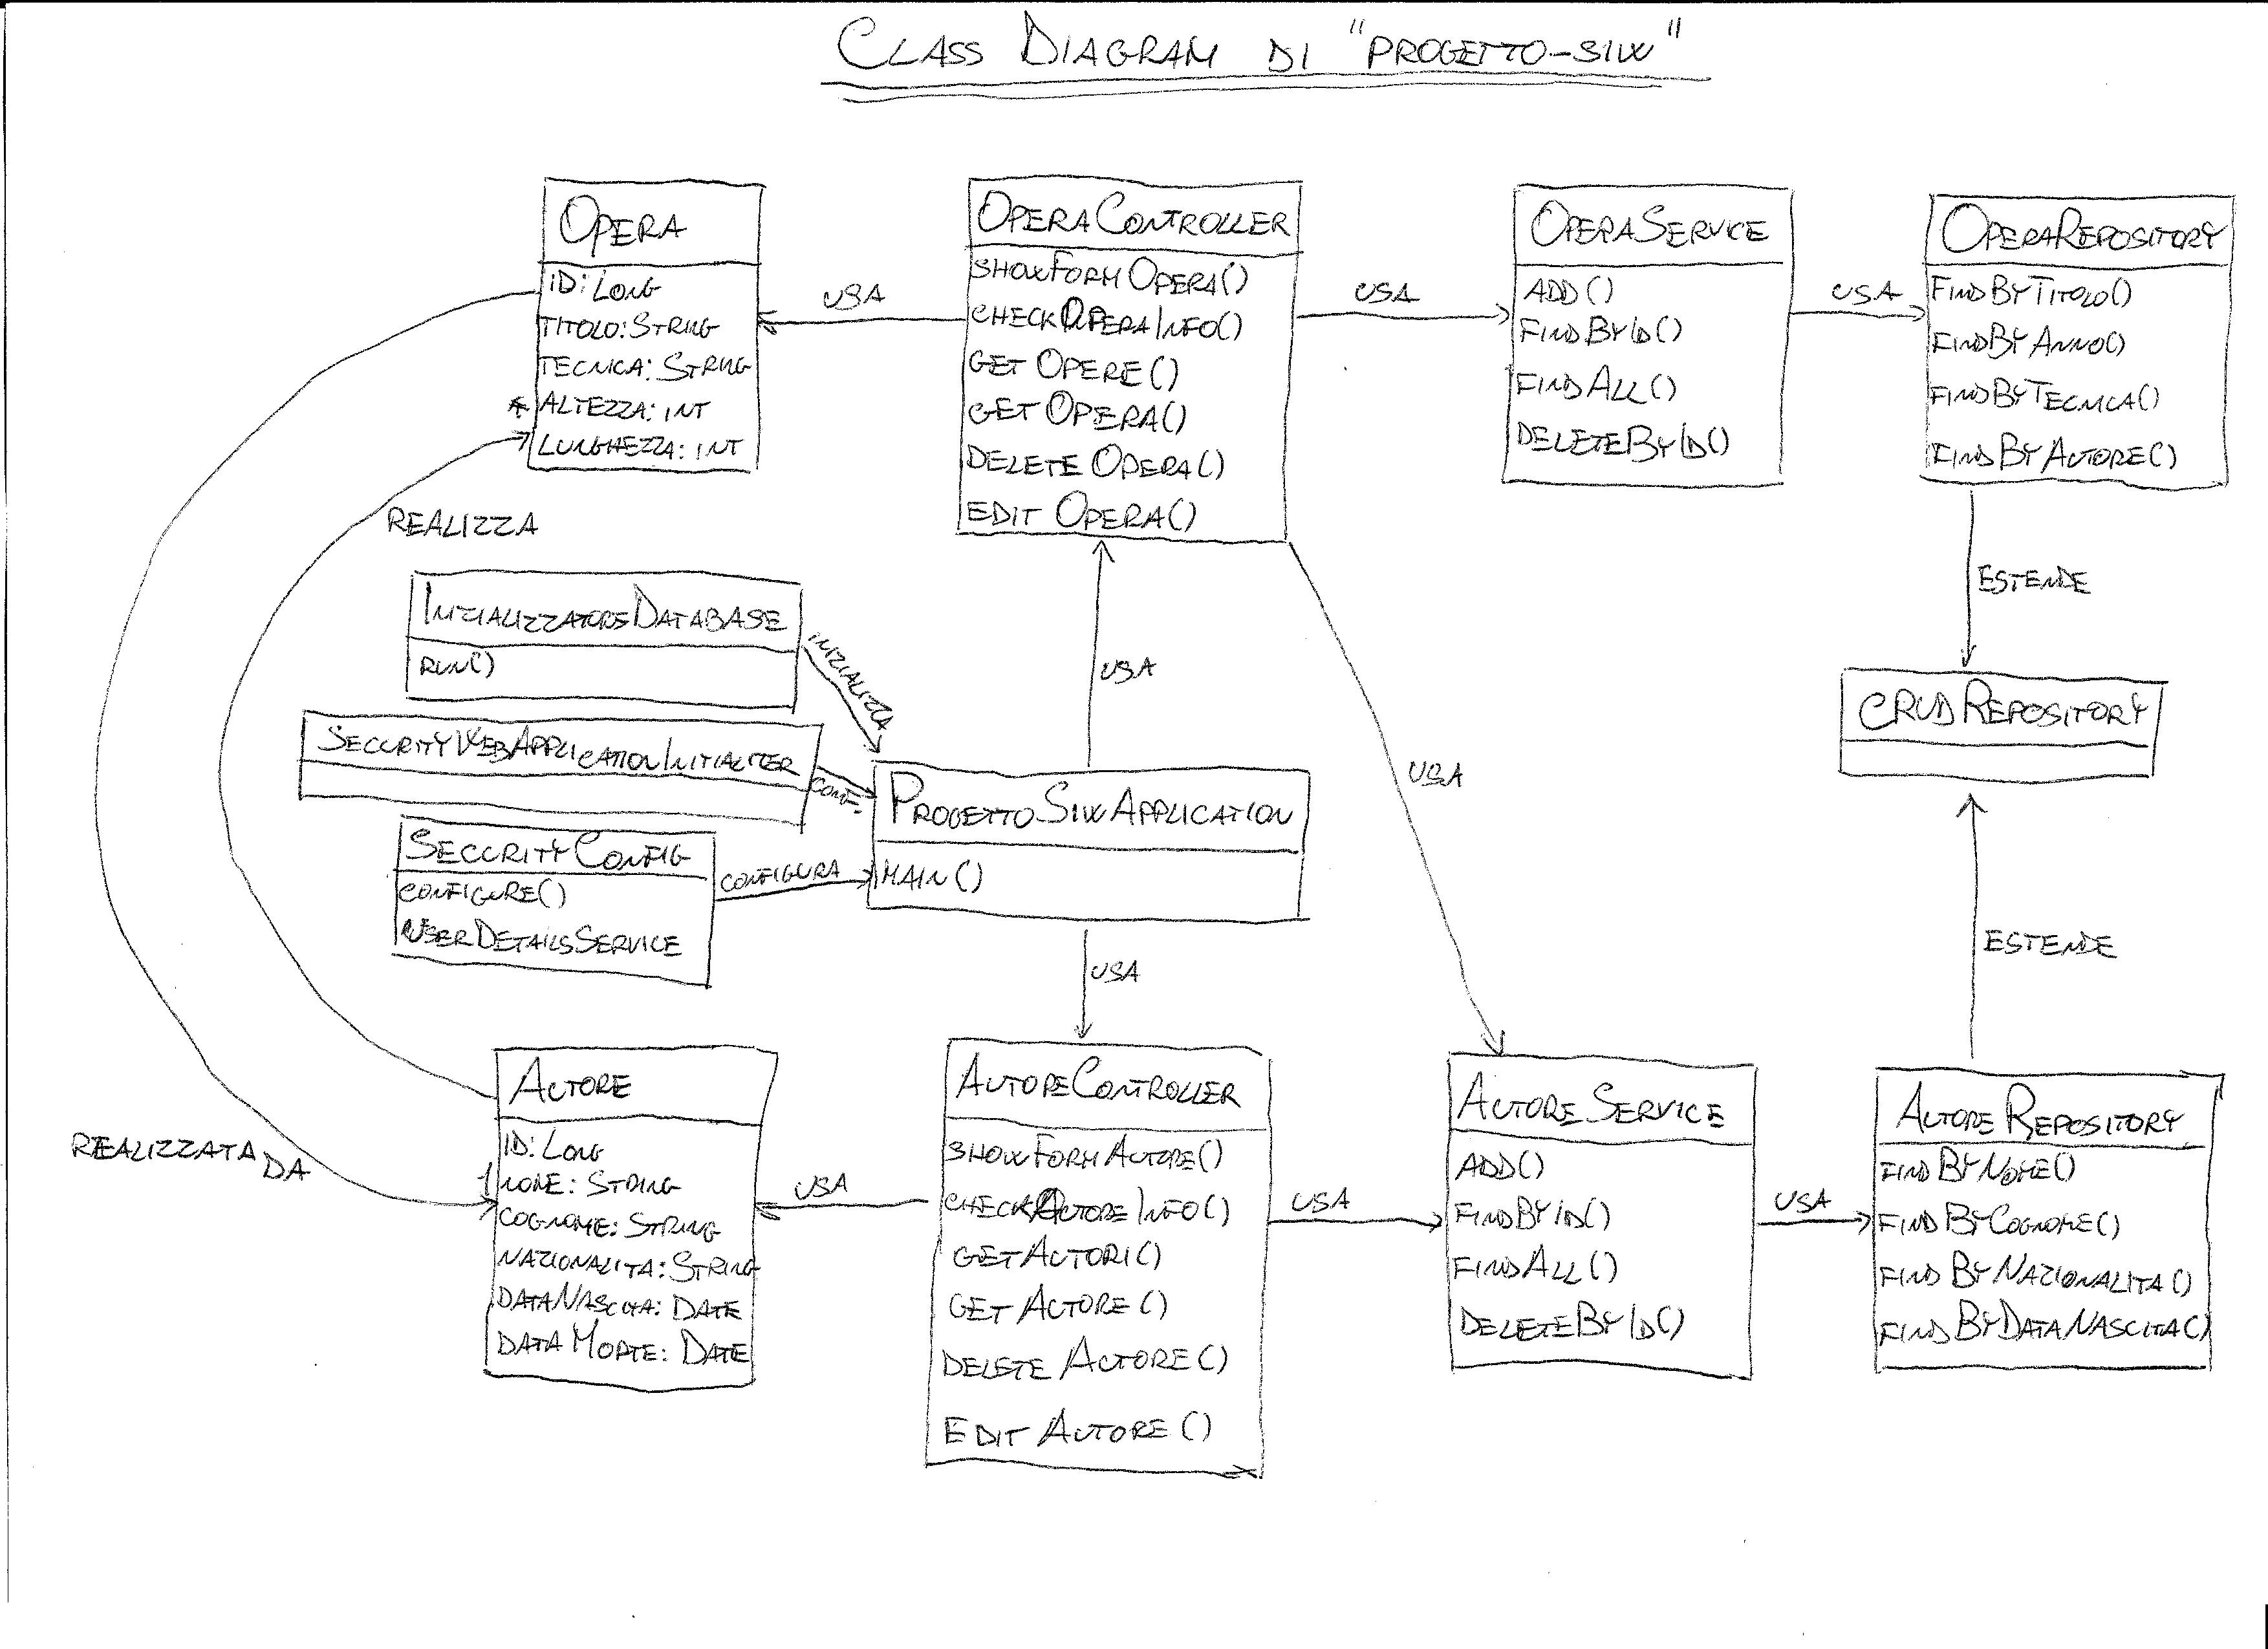 CLASS DIAGRAM DI "PROGETTO-SIW"
OPERA
ID: LONG
TITOLO: STRING
TECNICA: STRING
* ALTEZZA: INT
LUNGHEZZA: INT
USA
OPERACONTROLLER
SHOWFORMOPERA()
CHECKOPERAINFO()
GET OPERE()
GET OPERA()
DELETE OPERA()
EDIT OPERA()
USA
OPERASERVICE
ADD()
FINDBYID()
FINDALL()
DELETEBYID()
USA
OPERAREPOSITORY
FINDBYTITOLO()
FINDBYANNO()
FINDBYTECNICA()
FINDBYAUTORE()
REALIZZA
ESTENDE
INIZIALIZZATOREDATABASE
RUN()
INIZIALIZZA
USA
CRUDREPOSITORY
SECURITYWEBAPPLICATIONINITIALITER
CONF.
USA
PROGETTOSIWAPPLICATION
MAIN()
SECURITYCONFIG
CONFIGURE()
USERDETAILSSERVICE
CONFIGURA
ESTENDE
USA
REALIZZATA DA
AUTORE
ID: LONG
1 NOME: STRING
COGNOME: STRING
NAZIONALITA: STRING
DATANASCITA: DATE
DATAMORTE: DATE
USA
AUTORECONTROLLER
SHOWFORMAUTORE()
CHECKAUTOREINFO()
GETAUTORI()
GET AUTORE()
DELETE AUTORE()
EDIT AUTORE()
USA
AUTORESERVICE
ADD()
FINDBYID()
FINDALL()
DELETEBYID()
USA
AUTOREREPOSITORY
FINDBYNOME()
FINDBYCOGNOME()
FINDBYNAZIONALITA()
FINDBYDATANASCITA()